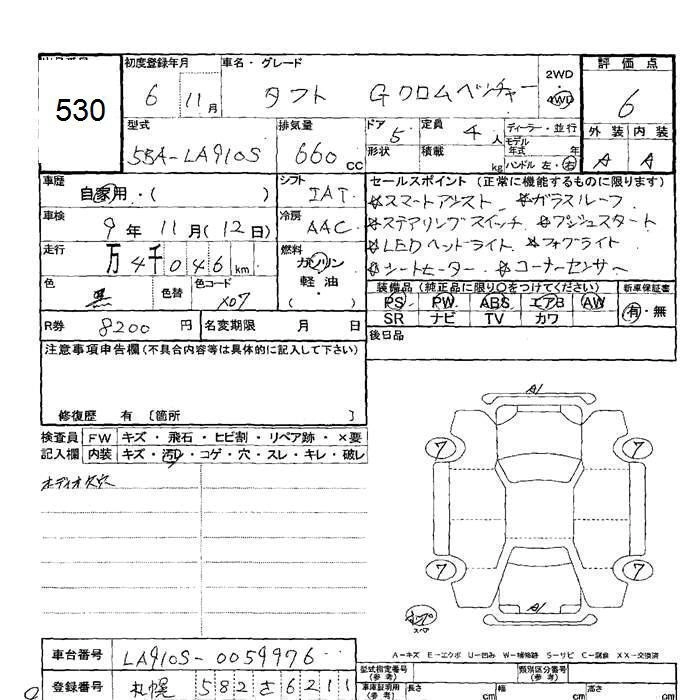 530
初度登録年月 車名・グレード 2WD 4WD 評価点
6 11月 タフト Gクロムベンチャー 6
型式 排気量 ドア 5 定員 4人 ディーラー・並行 外装 内装
5BA-LA910S 660cc 形状 積載 kg モデル年式 年 ハンドル 左・右 A A
車歴 自家用・( ) シフト IAT セールスポイント(正常に機能するものに限ります)
☆スマートアシスト ☆ガラスルーフ
車検 9年11月(12日) 冷房 AAC ☆ステアリングスイッチ ☆プッシュスタート
走行 万4千046km 燃料 ガソリン ☆LEDヘッドライト ☆フォグライト
軽油 ☆シートヒーター ☆コーナーセンサー
・( )
色 黒 色替 色コード X07 装備品(純正品に限り○をつけてください) 新車保証書
PS PW ABS エアB AW 有・無
SR ナビ TV カワ
R券 8200円 名変期限 月 日 後日品
注意事項申告欄(不具合内容等は具体的に記入して下さい)
修復歴 有 〔箇所 〕
検査員 FW キズ・飛石・ヒビ割・リペア跡・×要
記入欄 内装 キズ・汚れ・コゲ・穴・スレ・キレ・破レ
オーディオ欠穴
A1
7 7
7 7
A1
スペア
A-キズ E-エクボ U-凹み W-補修跡 S-サビ C-腐食 XX-交換済
車台番号 LA910S-0059976
型式指定番号(参考) 類別区分番号(参考)
登録番号 札幌 582 さ 6211
車庫証明用(参考) 長さ cm 幅 cm 高さ cm